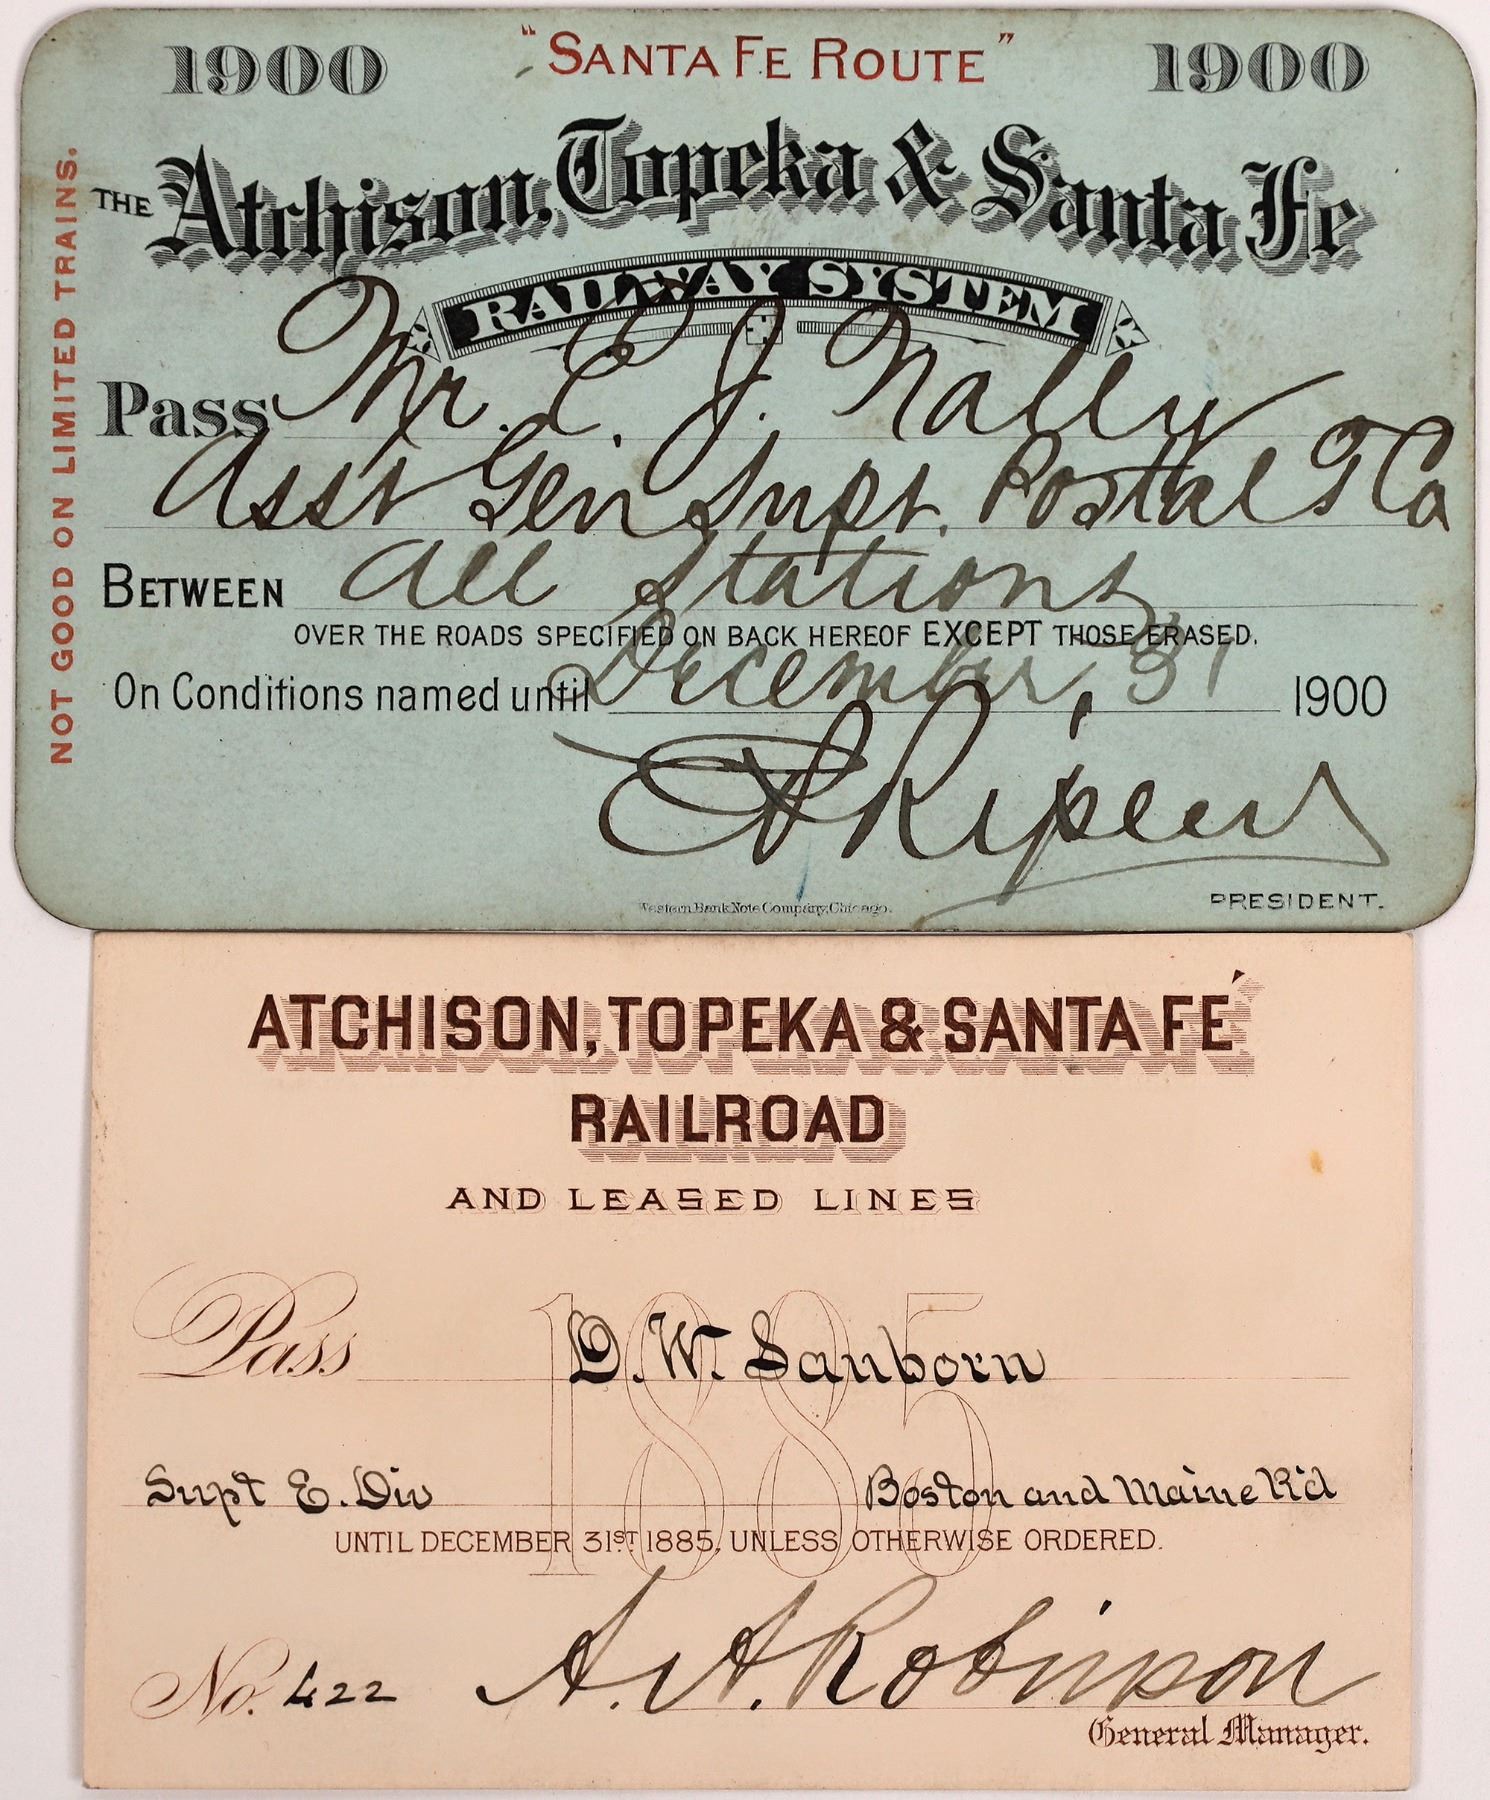 1900 "SANTA FE ROUTE" 1900
THE Atchison, Topeka & Santa Fe
RAILWAY SYSTEM
Pass Mr. E. J. Nally
Asst Gen Supt. Postal T Co
BETWEEN All Stations
OVER THE ROADS SPECIFIED ON BACK HEREOF EXCEPT THOSE ERASED.
On Conditions named until December 31 1900
Ripley
PRESIDENT.
Western Bank Note Company, Chicago.
NOT GOOD ON LIMITED TRAINS.
ATCHISON, TOPEKA & SANTA FÉ
RAILROAD
AND LEASED LINES
1885
Pass D. W. Sanborn
Supt E. Div Boston and Maine R'd
UNTIL DECEMBER 31ST 1885, UNLESS OTHERWISE ORDERED.
No. 422 A. A. Robinson
General Manager.